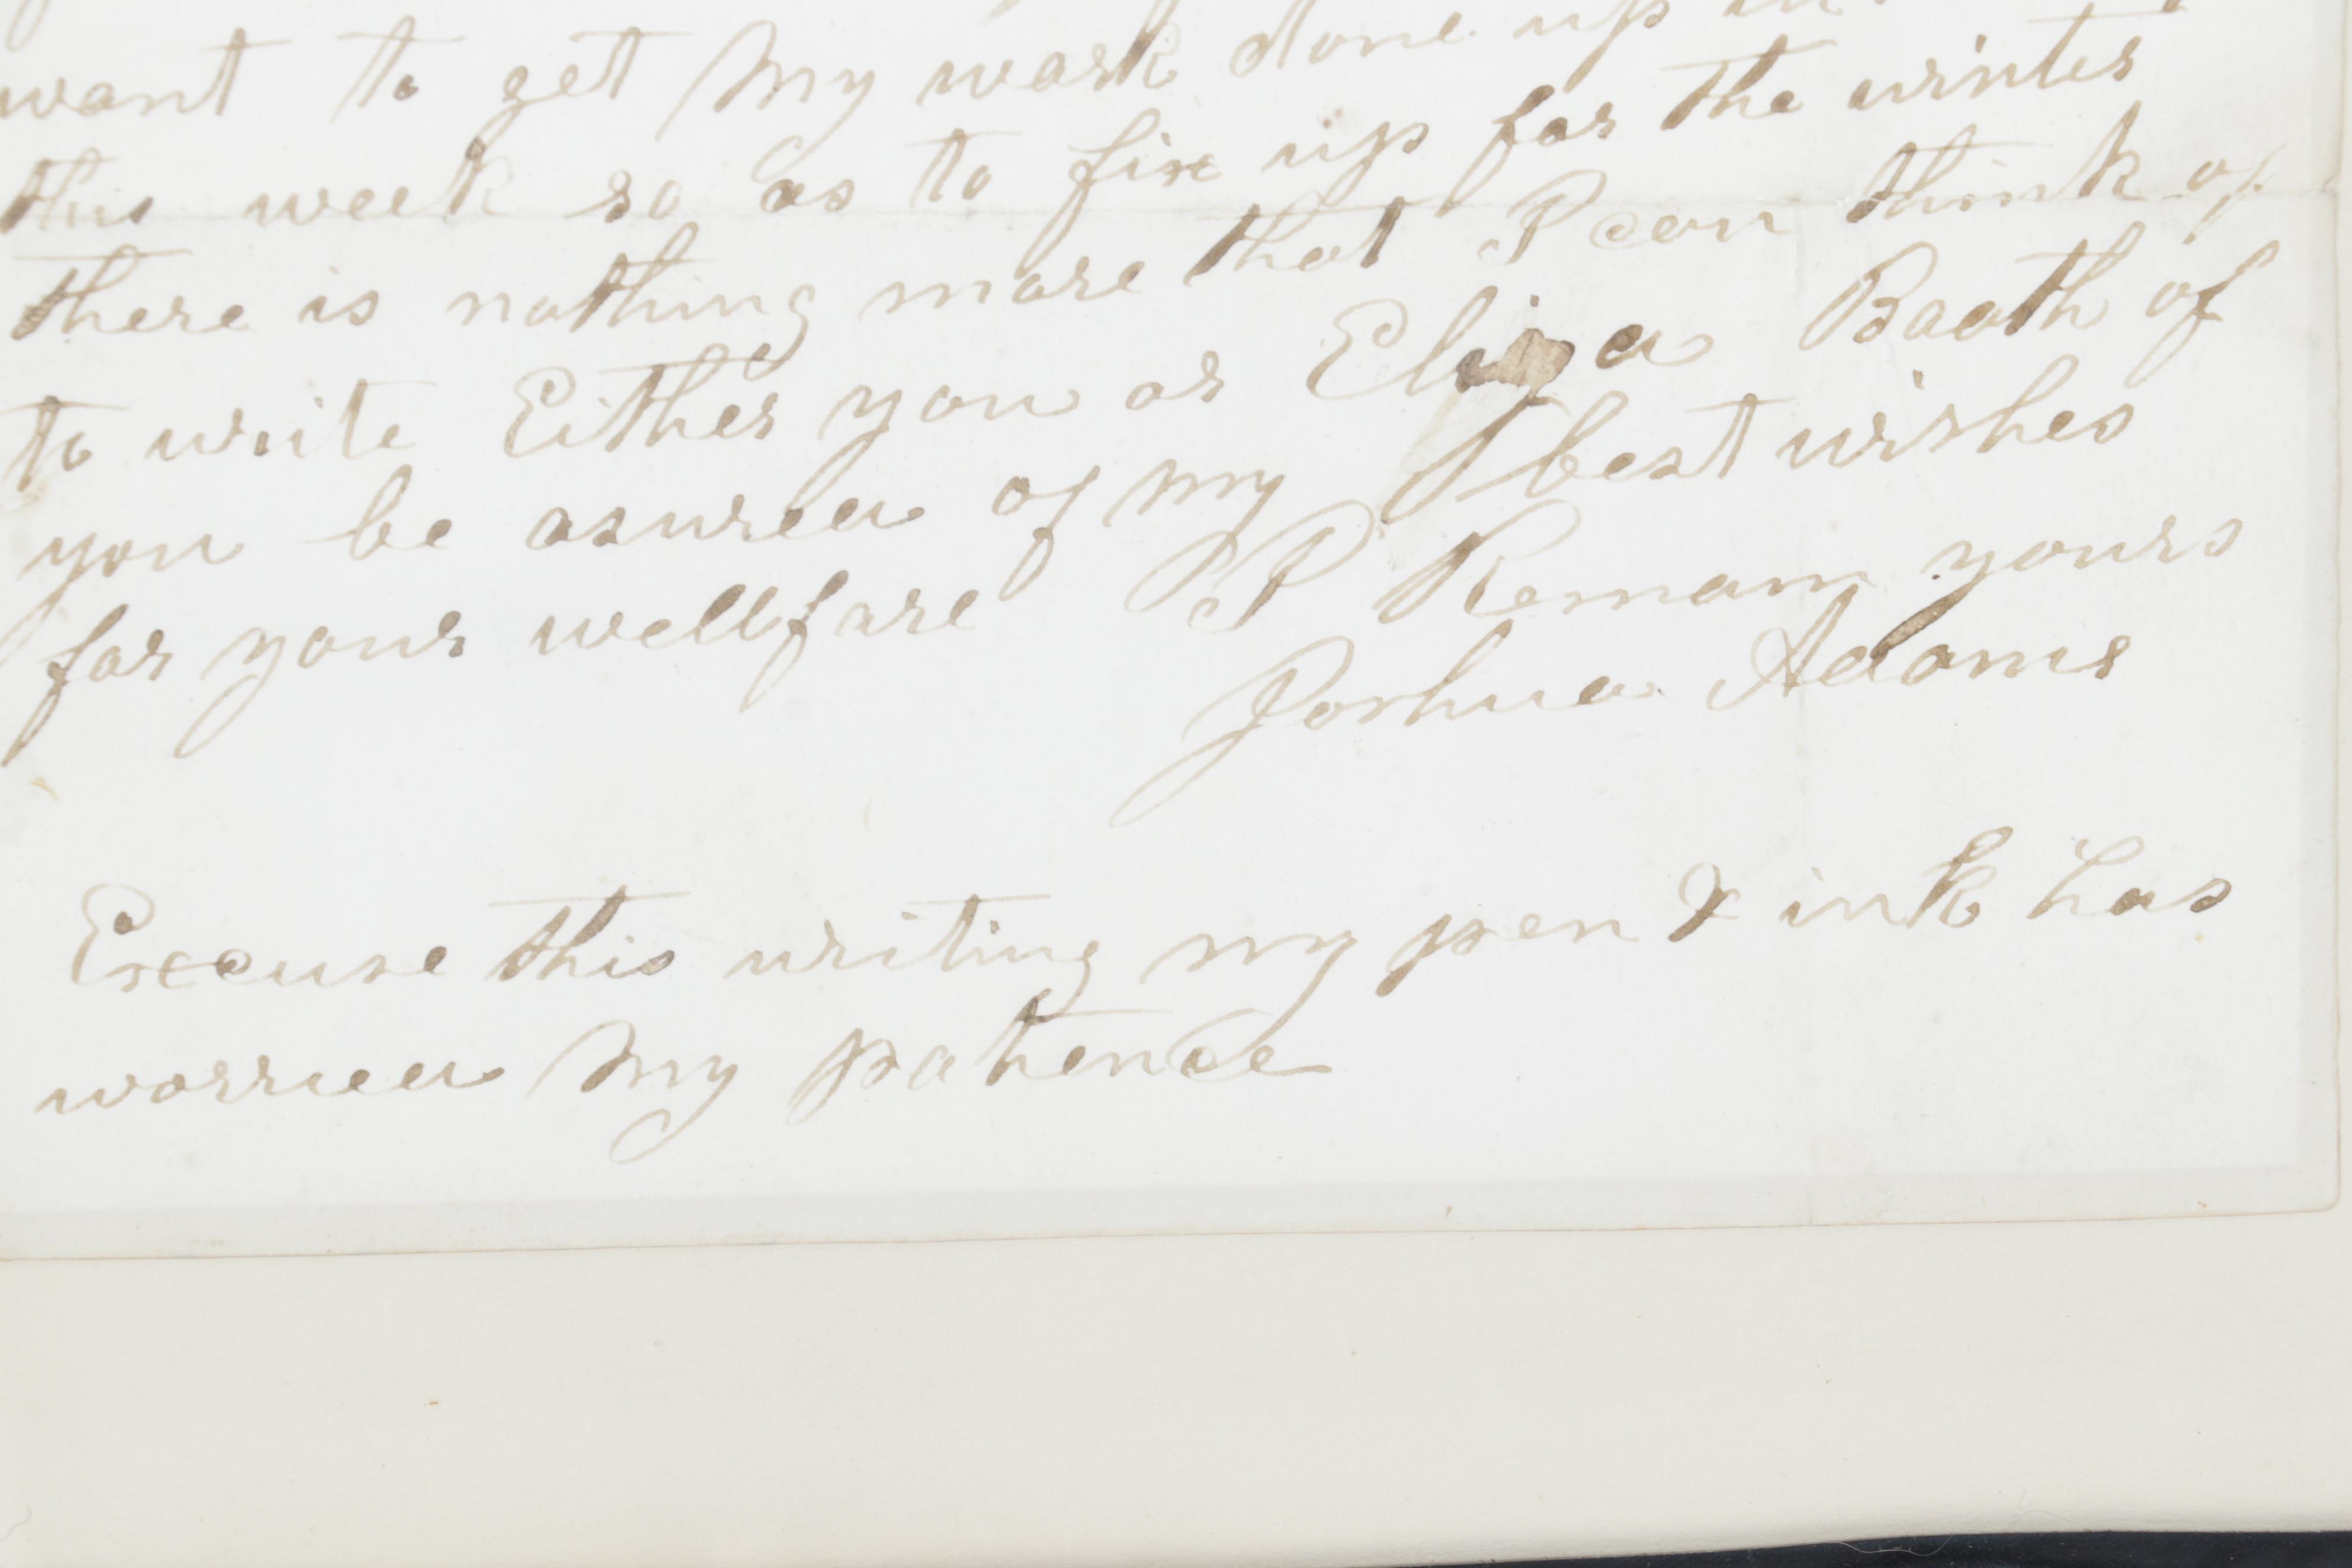 want to get My work done up in
this week so as to fix up for the winter
there is nothing more that I can think of
to write Either you or Eliza Booth of
you be asured of my best wishes
for your wellfare I Remain yours
Joshua Adams
Excuse this writing my pen & ink has
worried My patience